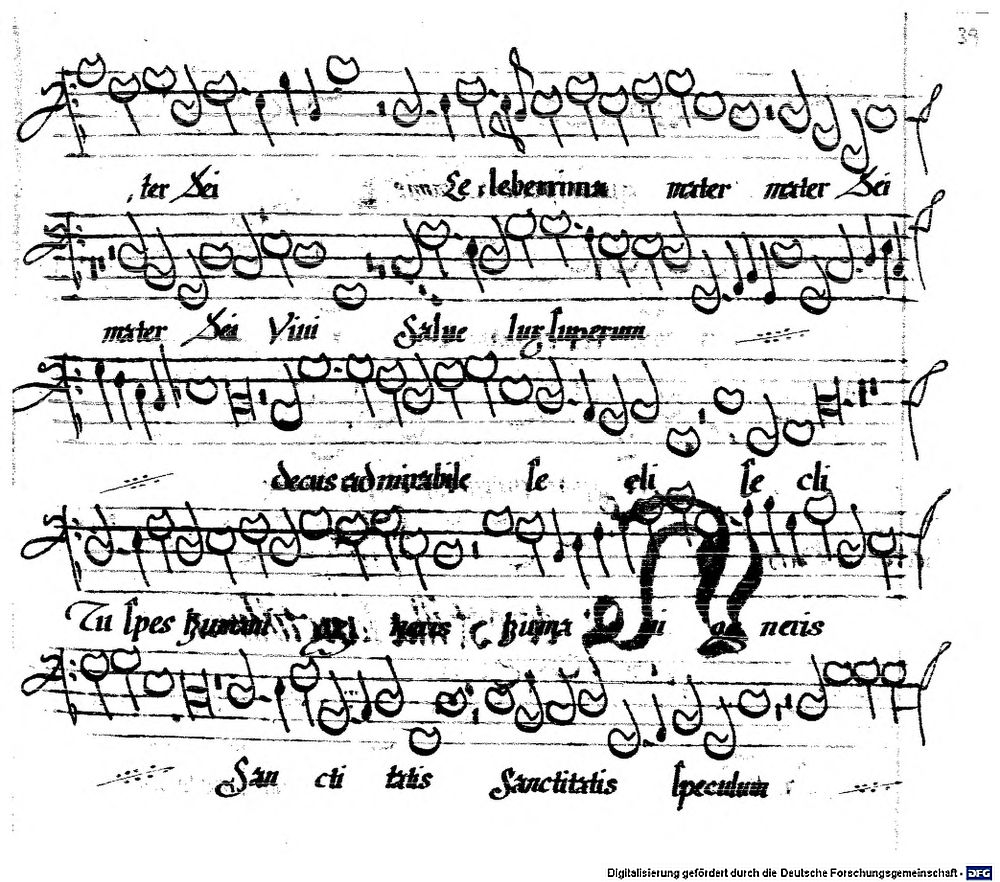 39
ter Dei Celeberrima mater mater Dei
mater Dei Viui Salue lux superum
decus admirabile se cli se cli
Tu spes humani neris huma ni ge neris
San cti tatis Sanctitatis speculum
Digitalisierung gefördert durch die Deutsche Forschungsgemeinschaft - DFG